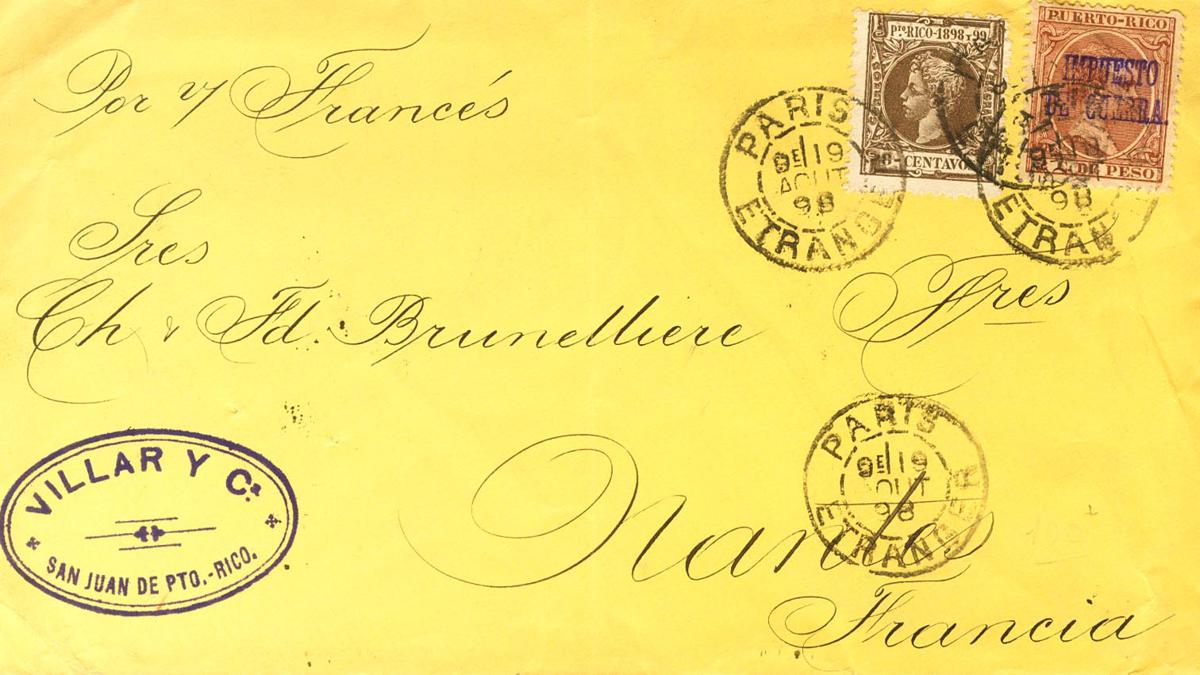 Por v/ Francés
Pto RICO-1898 y 99
CENTAVOS
PUERTO-RICO
IMPUESTO
DE GUERRA
DE PESO
PARIS
8E 19
AOUT
98
ETRANGER
PARIS
19
98
ETRANGER
Sres
Ch & Fd. Brunelliere Fres
Nantes
Francia
PARIS
8E 19
AOUT
98
ETRANGER
VILLAR Y Ca.
SAN JUAN DE PTO.-RICO.